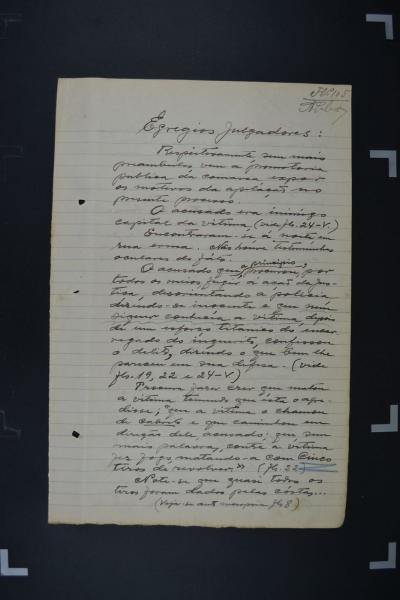 Fls. 105
Egregios Julgadores:
Respeitosamente, sem mais
preambulos, vem a promotoria
publica da comarca expor
os motivos da apelação no
presente processo.
O acusado era inimigo
capital da vitima, (vide fls. 24-V.)
Encontraram-se á noite em
rua erma. Não houve testemunhas
oculares do fato.
O acusado que, a principio, procurou, por
todos os meios, fugir á ação da jus-
tiça, desorientando a policia
dizendo-se inocente e que nem
siquer conhecia a vitima, depois
de um esforço titanico do encar-
regado do inquerito, confessou
o delito, dizendo o que bem lhe
pareceu em sua defesa. (vide
fls. 19, 22 e 24-V.)
Procura fazer crer que matou
a vitima temendo que esta o agre-
disse, "que a vitima o chamou
de cabra e que caminhou em
direção dele acusado, que sem
mais palavra, contra a vitima
fez fogo, matando-a com cinco
tiros de revolver." (fls. 22)
Note-se que quasi todos os
tiros foram dados pelas costas...
(Veja-se auto fls 8)